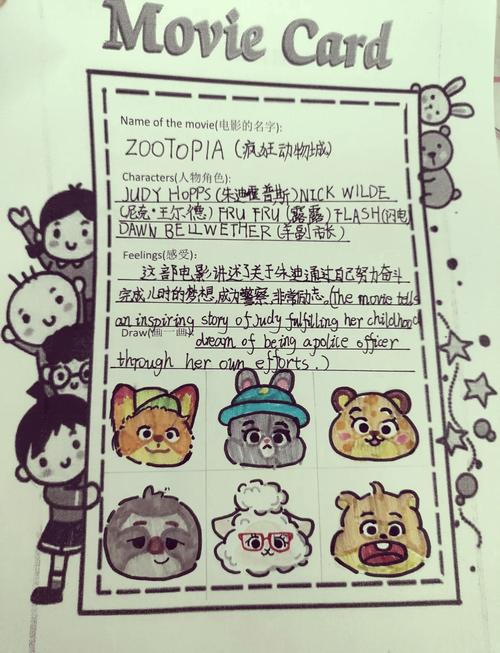 Movie Card
Name of the movie(电影的名字):
ZOOTOPIA (疯狂动物城)
Characters(人物角色):
JUDY HOPPS (朱迪霍普斯) NICK WILDE
(尼克·王尔德) FRU FRU (露露) FLASH (闪电)
DAWN BELLWETHER (羊副市长)
Feelings(感受):
这部电影讲述了关于朱迪通过自己努力奋斗
完成儿时的梦想,成为警察,非常励志。(The movie tells
an inspiring story of Judy fulfilling her childhood
Draw(画一画):
dream of being a police officer
through her own efforts.)